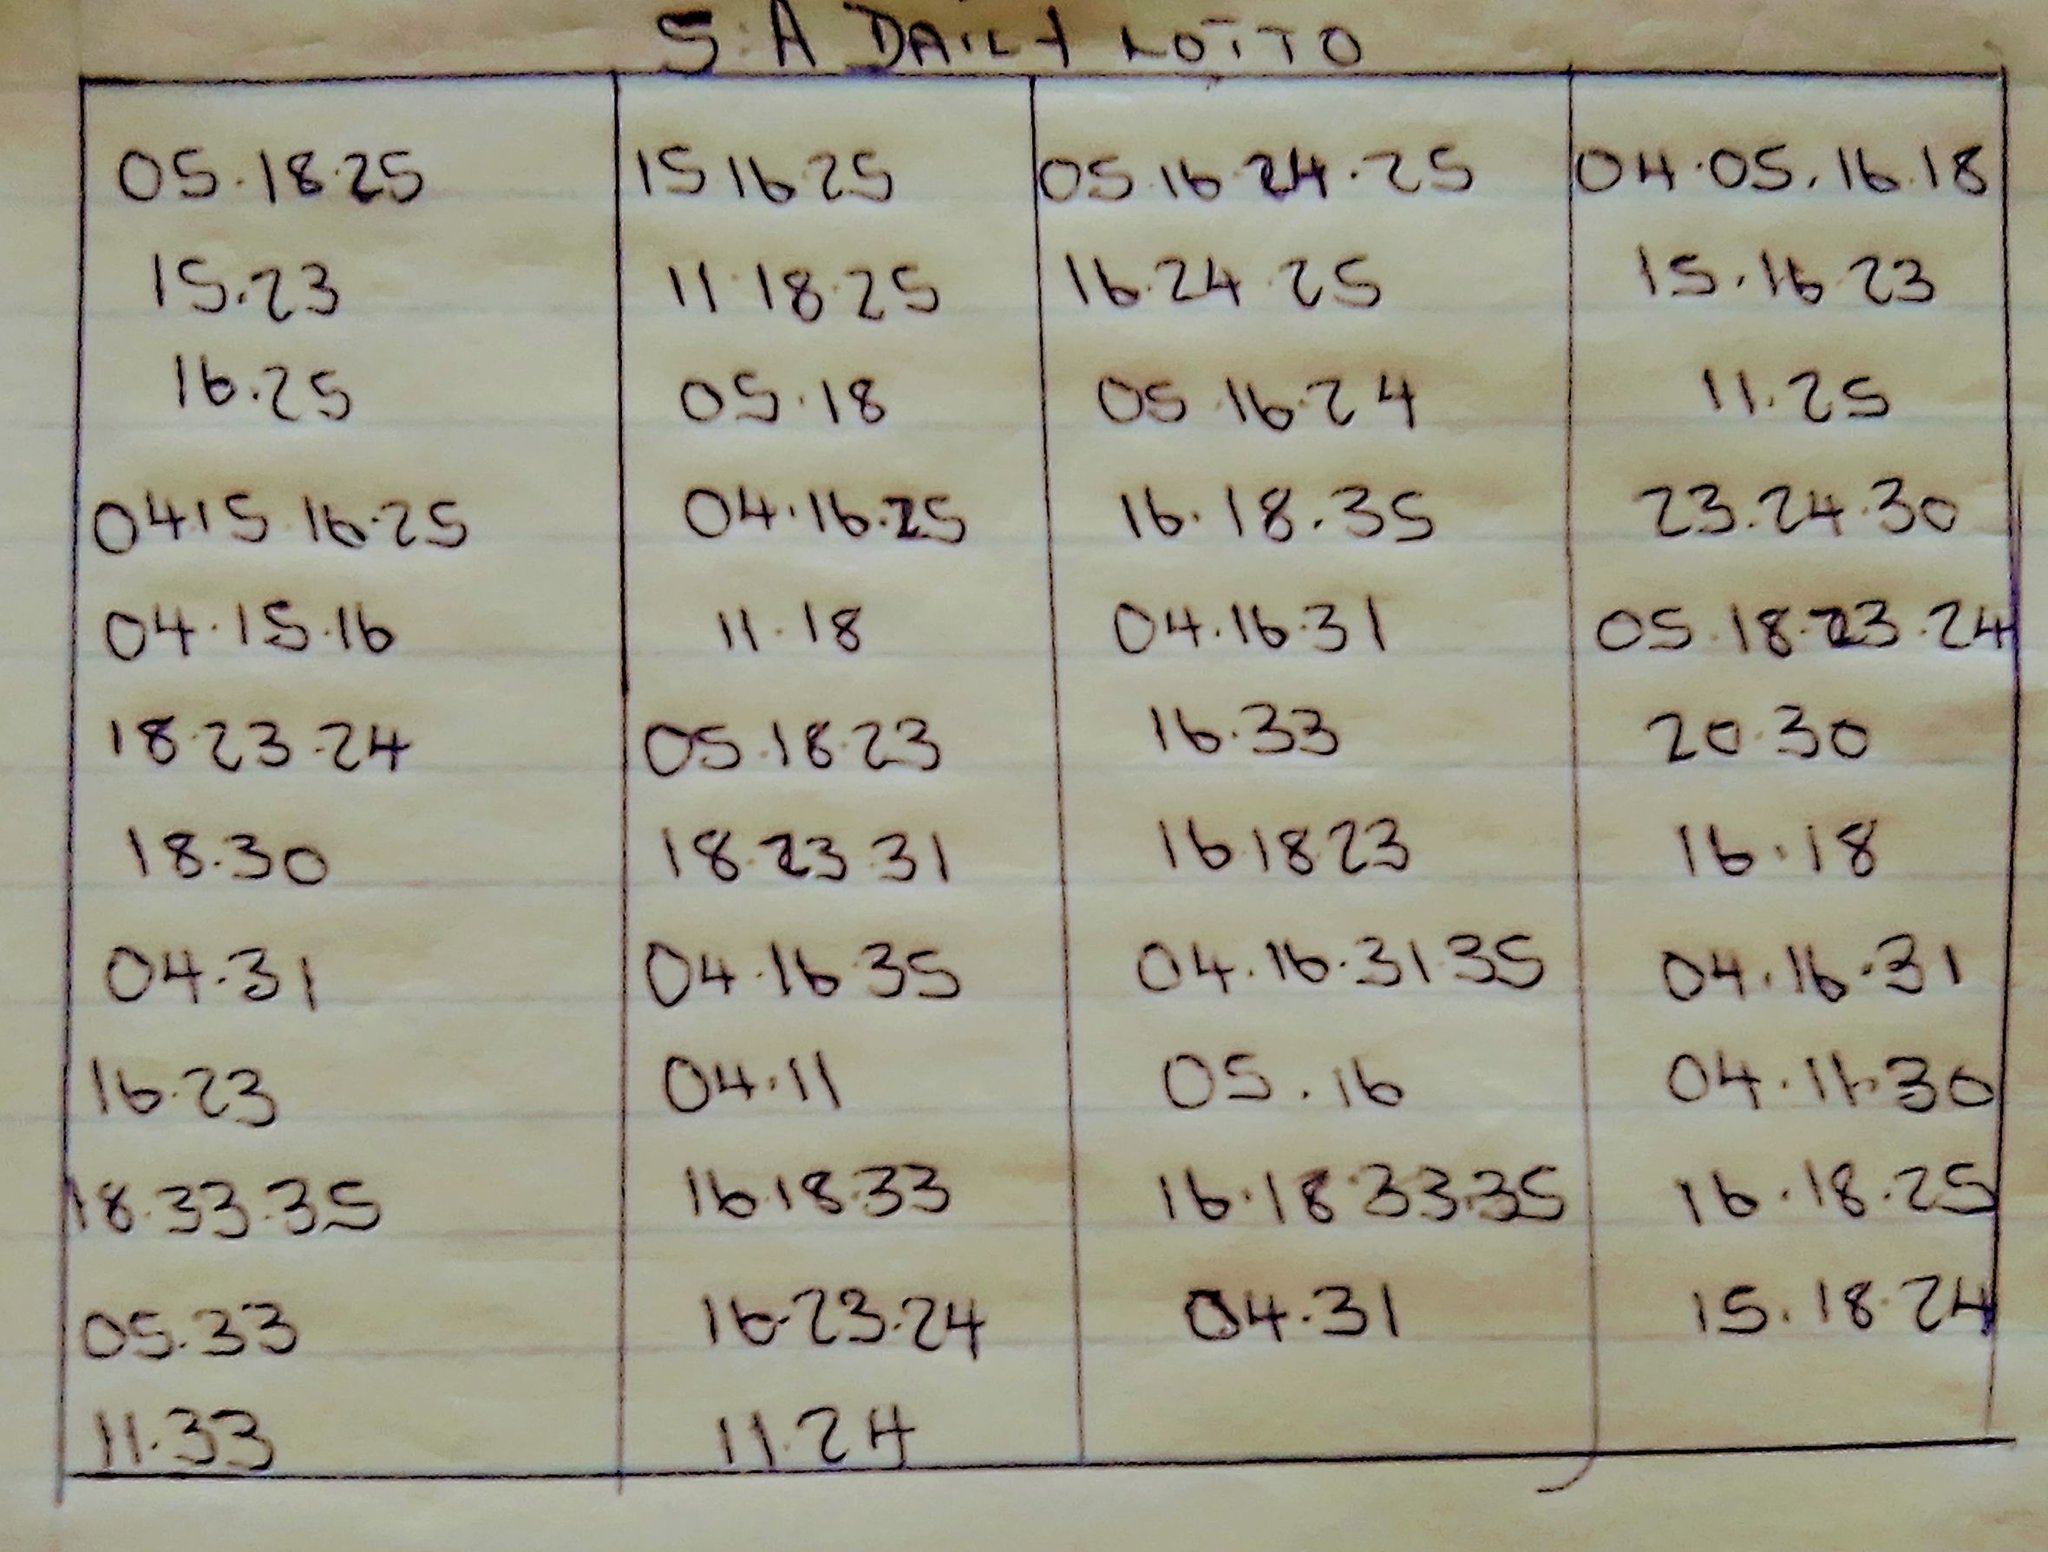 S.A DAILY LOTTO
05.18.25 15 16.25 05.16 24.25 04.05.16.18
15.23 11.18.25 16.24.25 15.16.23
16.25 05.18 05.16.24 11.25
04.15.16.25 04.16.25 16.18.35 23.24.30
04.15.16 11.18 04.16.31 05.18.23.24
18.23.24 05.18.23 16.33 20.30
18.30 18.23.31 16 18 23 16.18
04.31 04.16 35 04.16.31.35 04.16.31
16.23 04.11 05.16 04.11.30
18.33.35 16.18.33 16.18.33.35 16.18.25
05.33 16.23.24 04.31 15.18.24
11.33 11.24